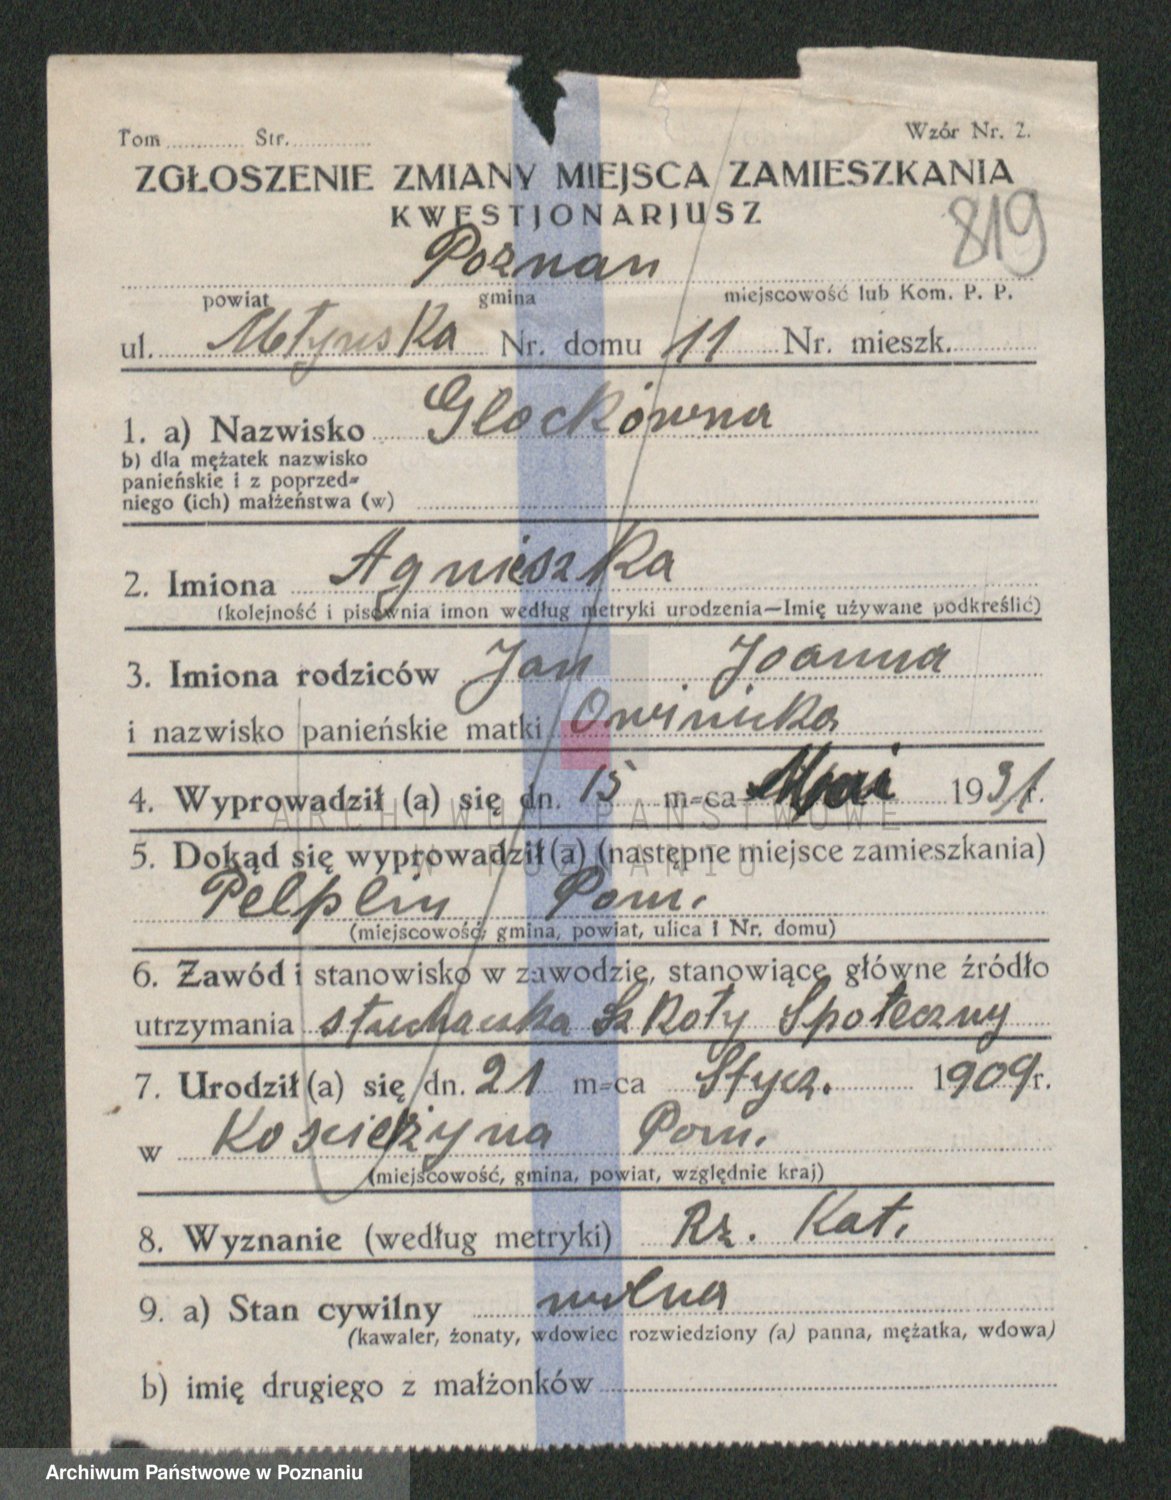 Tom ............ Str. ............
Wzór Nr. 2.
ZGŁOSZENIE ZMIANY MIEJSCA ZAMIESZKANIA
KWESTJONARJUSZ
819
Poznan
powiat gmina miejscowość lub Kom. P. P.
ul. Młynska Nr. domu 11 Nr. mieszk.
1. a) Nazwisko Glockówna
b) dla mężatek nazwisko
panieńskie i z poprzed=
niego (ich) małżeństwa (w)
2. Imiona Agnieszka
(kolejność i pisownia imon według metryki urodzenia—Imię używane podkreślić)
3. Imiona rodziców Jan Joanna
i nazwisko panieńskie matki Owinicka
4. Wyprowadził (a) się dn. 15 m=ca Mai 1931 r.
ARCHIWUM PAŃSTWOWE
W POZNANIU
5. Dokąd się wyprowadził (a) (następne miejsce zamieszkania)
Pelplin Pom.
(miejscowość, gmina, powiat, ulica i Nr. domu)
6. Zawód i stanowisko w zawodzie, stanowiące główne źródło
utrzymania słuchaczka Szkoły Społeczny
7. Urodził (a) się dn. 21 m=ca Stycz. 1909 r.
w Kościeżyna Pom.
(miejscowość, gmina, powiat, względnie kraj)
8. Wyznanie (według metryki) Rz. Kat.
9. a) Stan cywilny wolna
(kawaler, żonaty, wdowiec rozwiedziony (a) panna, mężatka, wdowa)
b) imię drugiego z małżonków
Archiwum Państwowe w Poznaniu